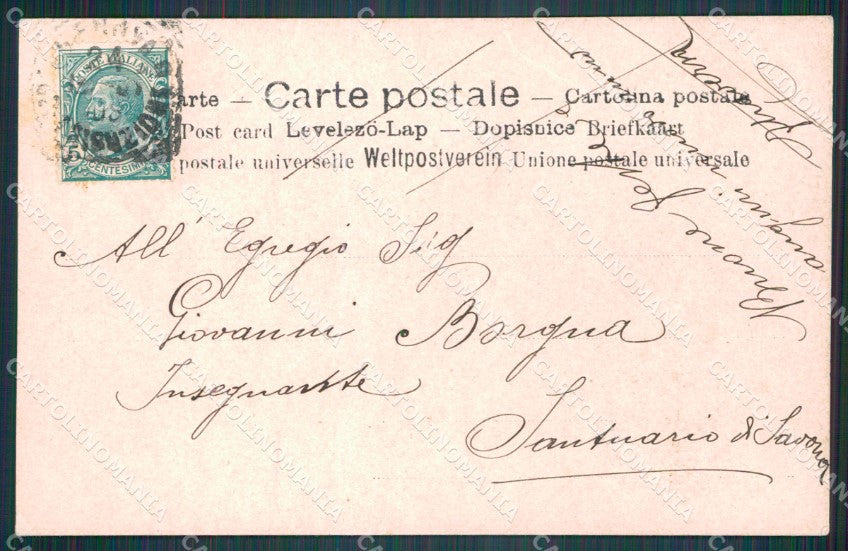 arte — Carte postale — Cartolina postale
Post card Levelező-Lap — Dopisnice Briefkaart
postale universelle Weltpostverein Unione postale universale
POSTE ITALIANE
5
CENTESIMI
All' Egregio Sig
Giovanni Borgna
Insegnante
Santuario di Savona
CARTOLINOMANIA